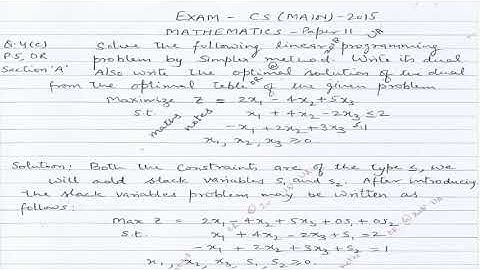 EXAM - CS (MAIN) - 2015
MATHEMATICS - Paper II
Q.4(c) Solve the following linear programming
P5, OR problem by Simplex method. Write its dual
Section 'A' Also write the optimal solution of the dual
from the optimal table of the given problem
Maximize Z = 2x₁ - 4x₂ + 5x₃
s.t. x₁ + 4x₂ - 2x₃ ≤ 2
-x₁ + 2x₂ + 3x₃ ≤ 1
x₁, x₂, x₃ ≥ 0
maths notes
Solution: Both the Constraints are of the type ≤, we
will add slack variables S₁ and S₂. After introducing
the slack variables problem may be written as
follows:
Max Z = 2x₁ - 4x₂ + 5x₃ + 0S₁ + 0S₂
s.t. x₁ + 4x₂ - 2x₃ + S₁ = 2
-x₁ + 2x₂ + 3x₃ + S₂ = 1
x₁, x₂, x₃, S₁, S₂ ≥ 0.